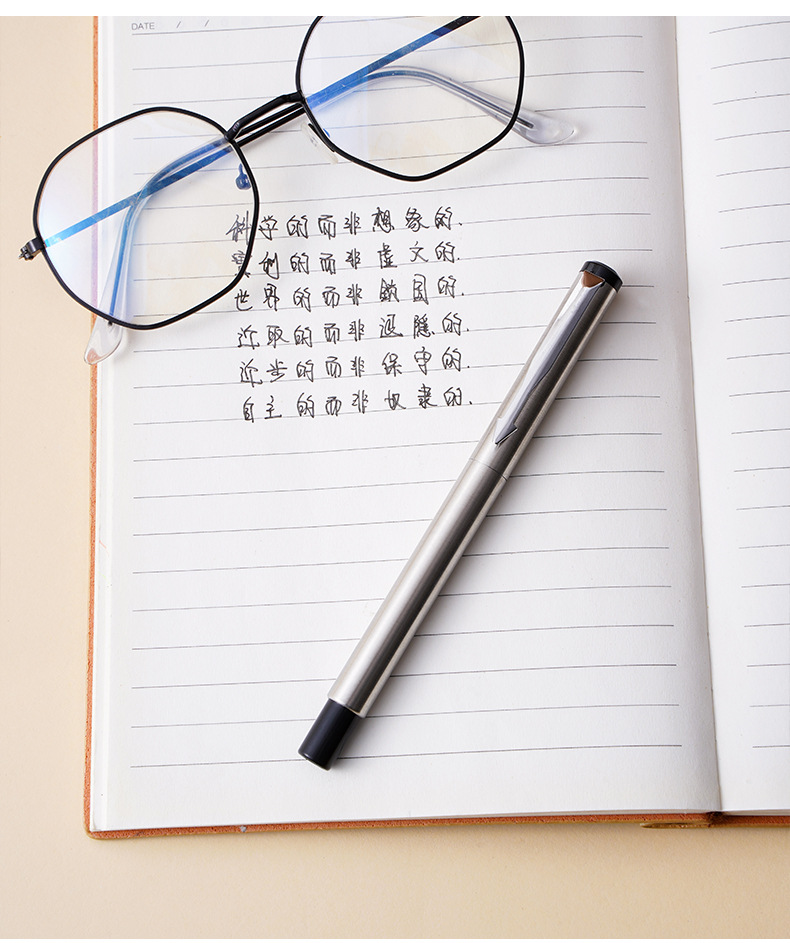 DATE / /
科学的而非想象的.
实利的而非虚文的.
世界的而非鎖国的.
近取的而非退隐的.
近步的而非保守的.
自主的而非奴隶的.